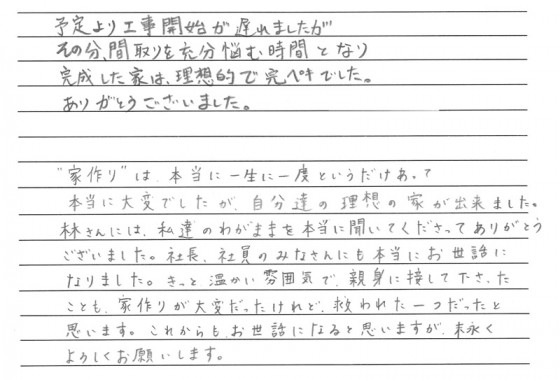 予定より工事開始が遅れましたが
その分、間取りを充分悩む時間となり
完成した家は、理想的で完ペキでした。
ありがとうございました。
"家作り"は、本当に一生に一度というだけあって
本当に大変でしたが、自分達の理想の家が出来ました。
林さんには、私達のわがままを本当に聞いてくださってありがとう
ございました。社長、社員のみなさんにも本当にお世話に
なりました。きっと温かい雰囲気で、親身に接して下さった
ことも、家作りが大変だったけれど、救われた一つだったと
思います。これからも、お世話になると思いますが、末永く
よろしくお願いします。